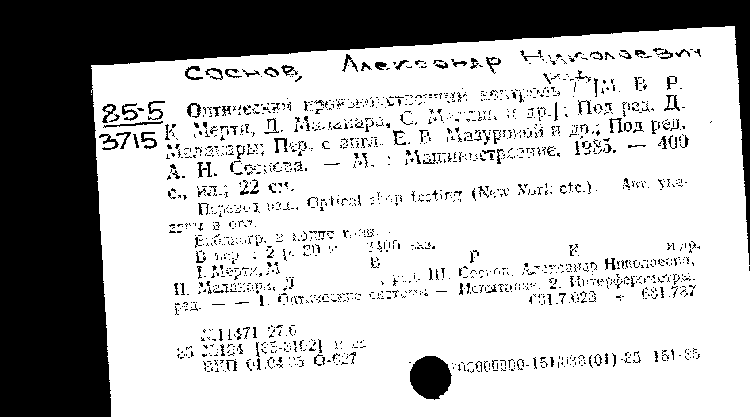 Соснов, Александр Николаевич
85-5
3715
Оптический производственный контроль / [М. В. Р.
К. Мерти, Д. Малакара, С. и др.]; Под ред. Д.
Малакары; Пер. с англ. Е. В. Мазуриной и др.; Под ред.
А. Н. Соснова. — М. : Машиностроение, 1985. — 400
с., ил.; 22 см.
Перевод изд.: Optical shop testing (New York etc.). Авт. ука-
заны в огл.
Библиогр. в конце глав.
В пер. : 2 р. 80 к. 3400 экз.
I. Мерти, М В Р К и др.
II. Малакара, Д , ред. III. Соснов, Александр Николаевич,
ред. — — 1. Оптические системы — Испытание. 2. Интерферометры.
681.7.023 + 681.787
№11471 27.6
85 №184 [85-3162] п
ВКП 04.04.85 О-627
-151 (01)-85 151-85